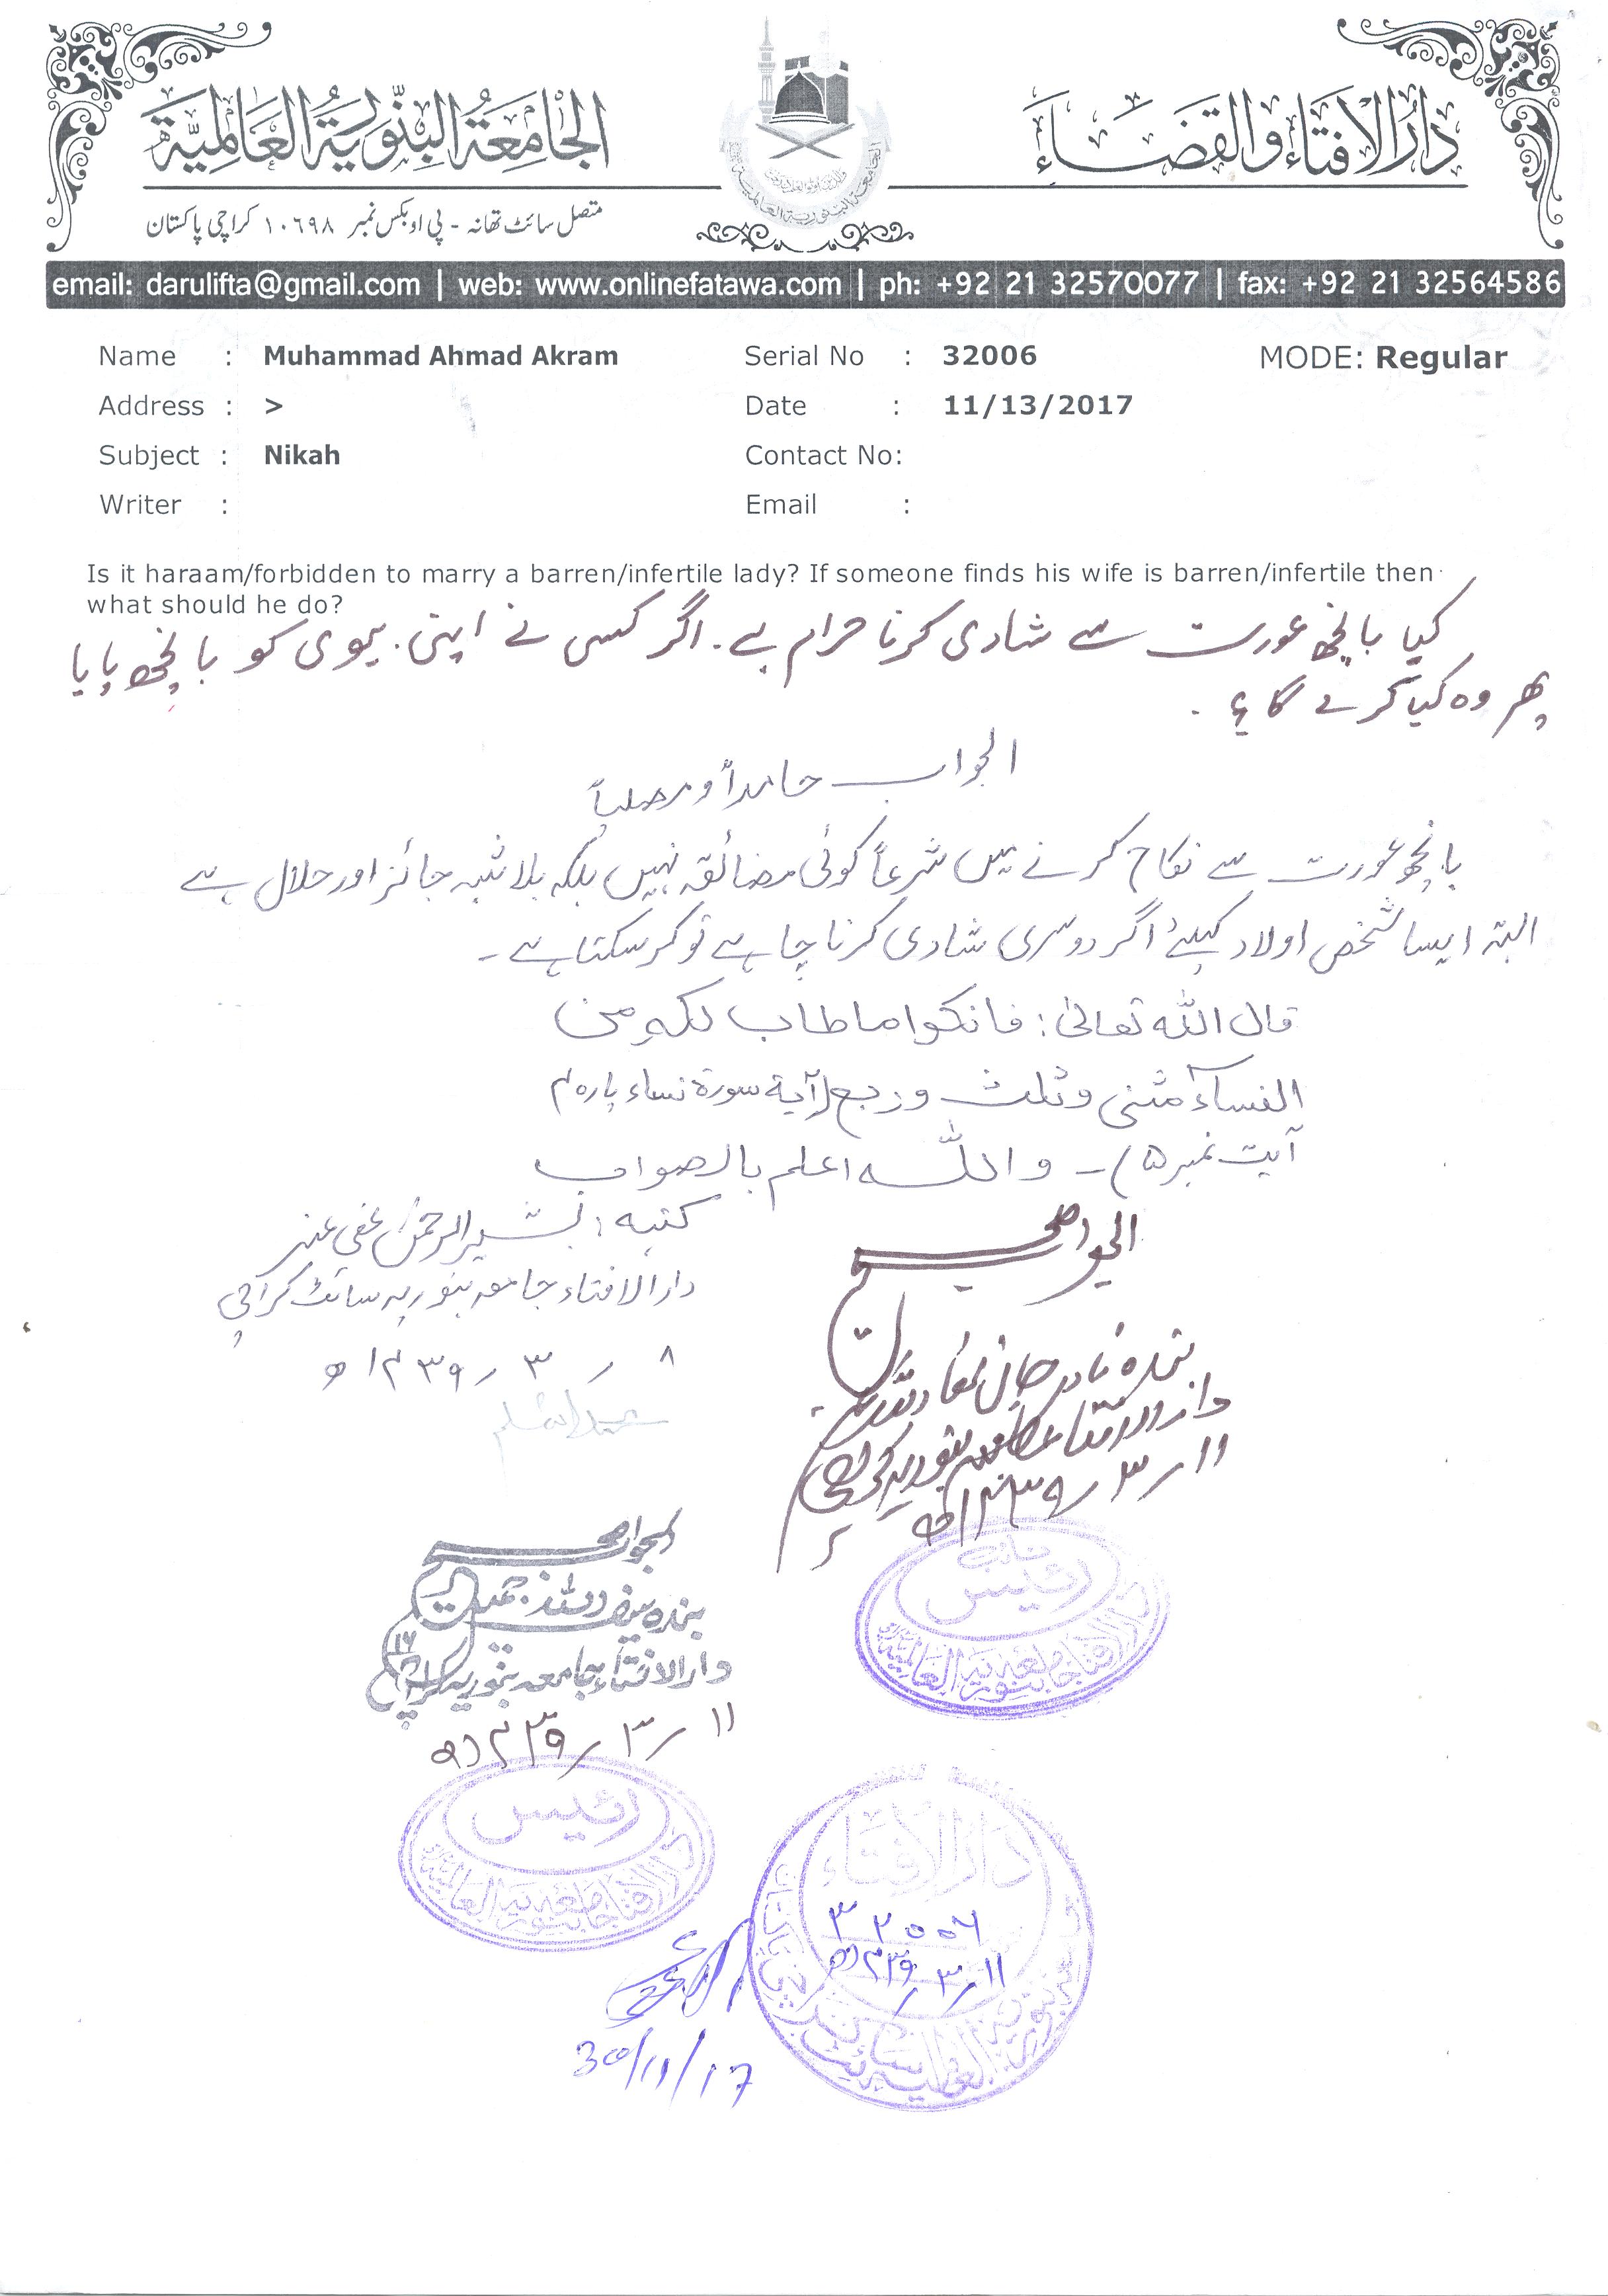 دارالافتاء والقضاء
الجامعة البنورية العالمية
متصل سائٹ تھانہ - پی او بکس نمبر ۱۰۶۹۸ کراچی پاکستان
email: darulifta@gmail.com | web: www.onlinefatawa.com | ph: +92 21 32570077 | fax: +92 21 32564586
Name : Muhammad Ahmad Akram Serial No : 32006 MODE: Regular
Address : > Date : 11/13/2017
Subject : Nikah Contact No:
Writer : Email :
Is it haraam/forbidden to marry a barren/infertile lady? If someone finds his wife is barren/infertile then
what should he do?
کیا بانجھ عورت سے شادی کرنا حرام ہے۔ اگر کسی نے اپنی بیوی کو بانجھ پایا
پھر وہ کیا کرے گا؟
الجواب حامداً ومصلیاً
بانجھ عورت سے نکاح کرنے میں شرعاً کوئی مضائقہ نہیں بلکہ بلا شبہ جائز اور حلال ہے
البتہ ایسا شخص اولاد کیلئے اگر دوسری شادی کرنا چاہے تو کر سکتا ہے۔
قال اللہ تعالیٰ: فانکحوا ما طاب لکم من
النساء مثنی وثلث وربع (آیة سورة نساء پارہ ۴
آیت نمبر ۵)۔ واللہ اعلم بالصواب
کتبہ: بشیر الرحمن عفی عنہ
دارالافتاء جامعہ بنوریہ سائٹ کراچی
۸ / ۳ / ۱۴۳۹ھ
الجواب صحیح
بندہ نادر جان
دارالافتاء جامعہ بنوریہ کراچی
۱۱ / ۳ / ۱۴۳۹ھ
نائب
رئیس
دارالافتاء جامعہ بنوریہ العالمیہ
الجواب صحیح
بندہ
دارالافتاء جامعہ بنوریہ کراچی
۱۱ / ۳ / ۱۴۳۹ھ
رئیس
دارالافتاء جامعہ بنوریہ العالمیہ
دارالافتاء
۳۲۰۰۶
۱۱ / ۳ / ۱۴۳۹ھ
30/11/17